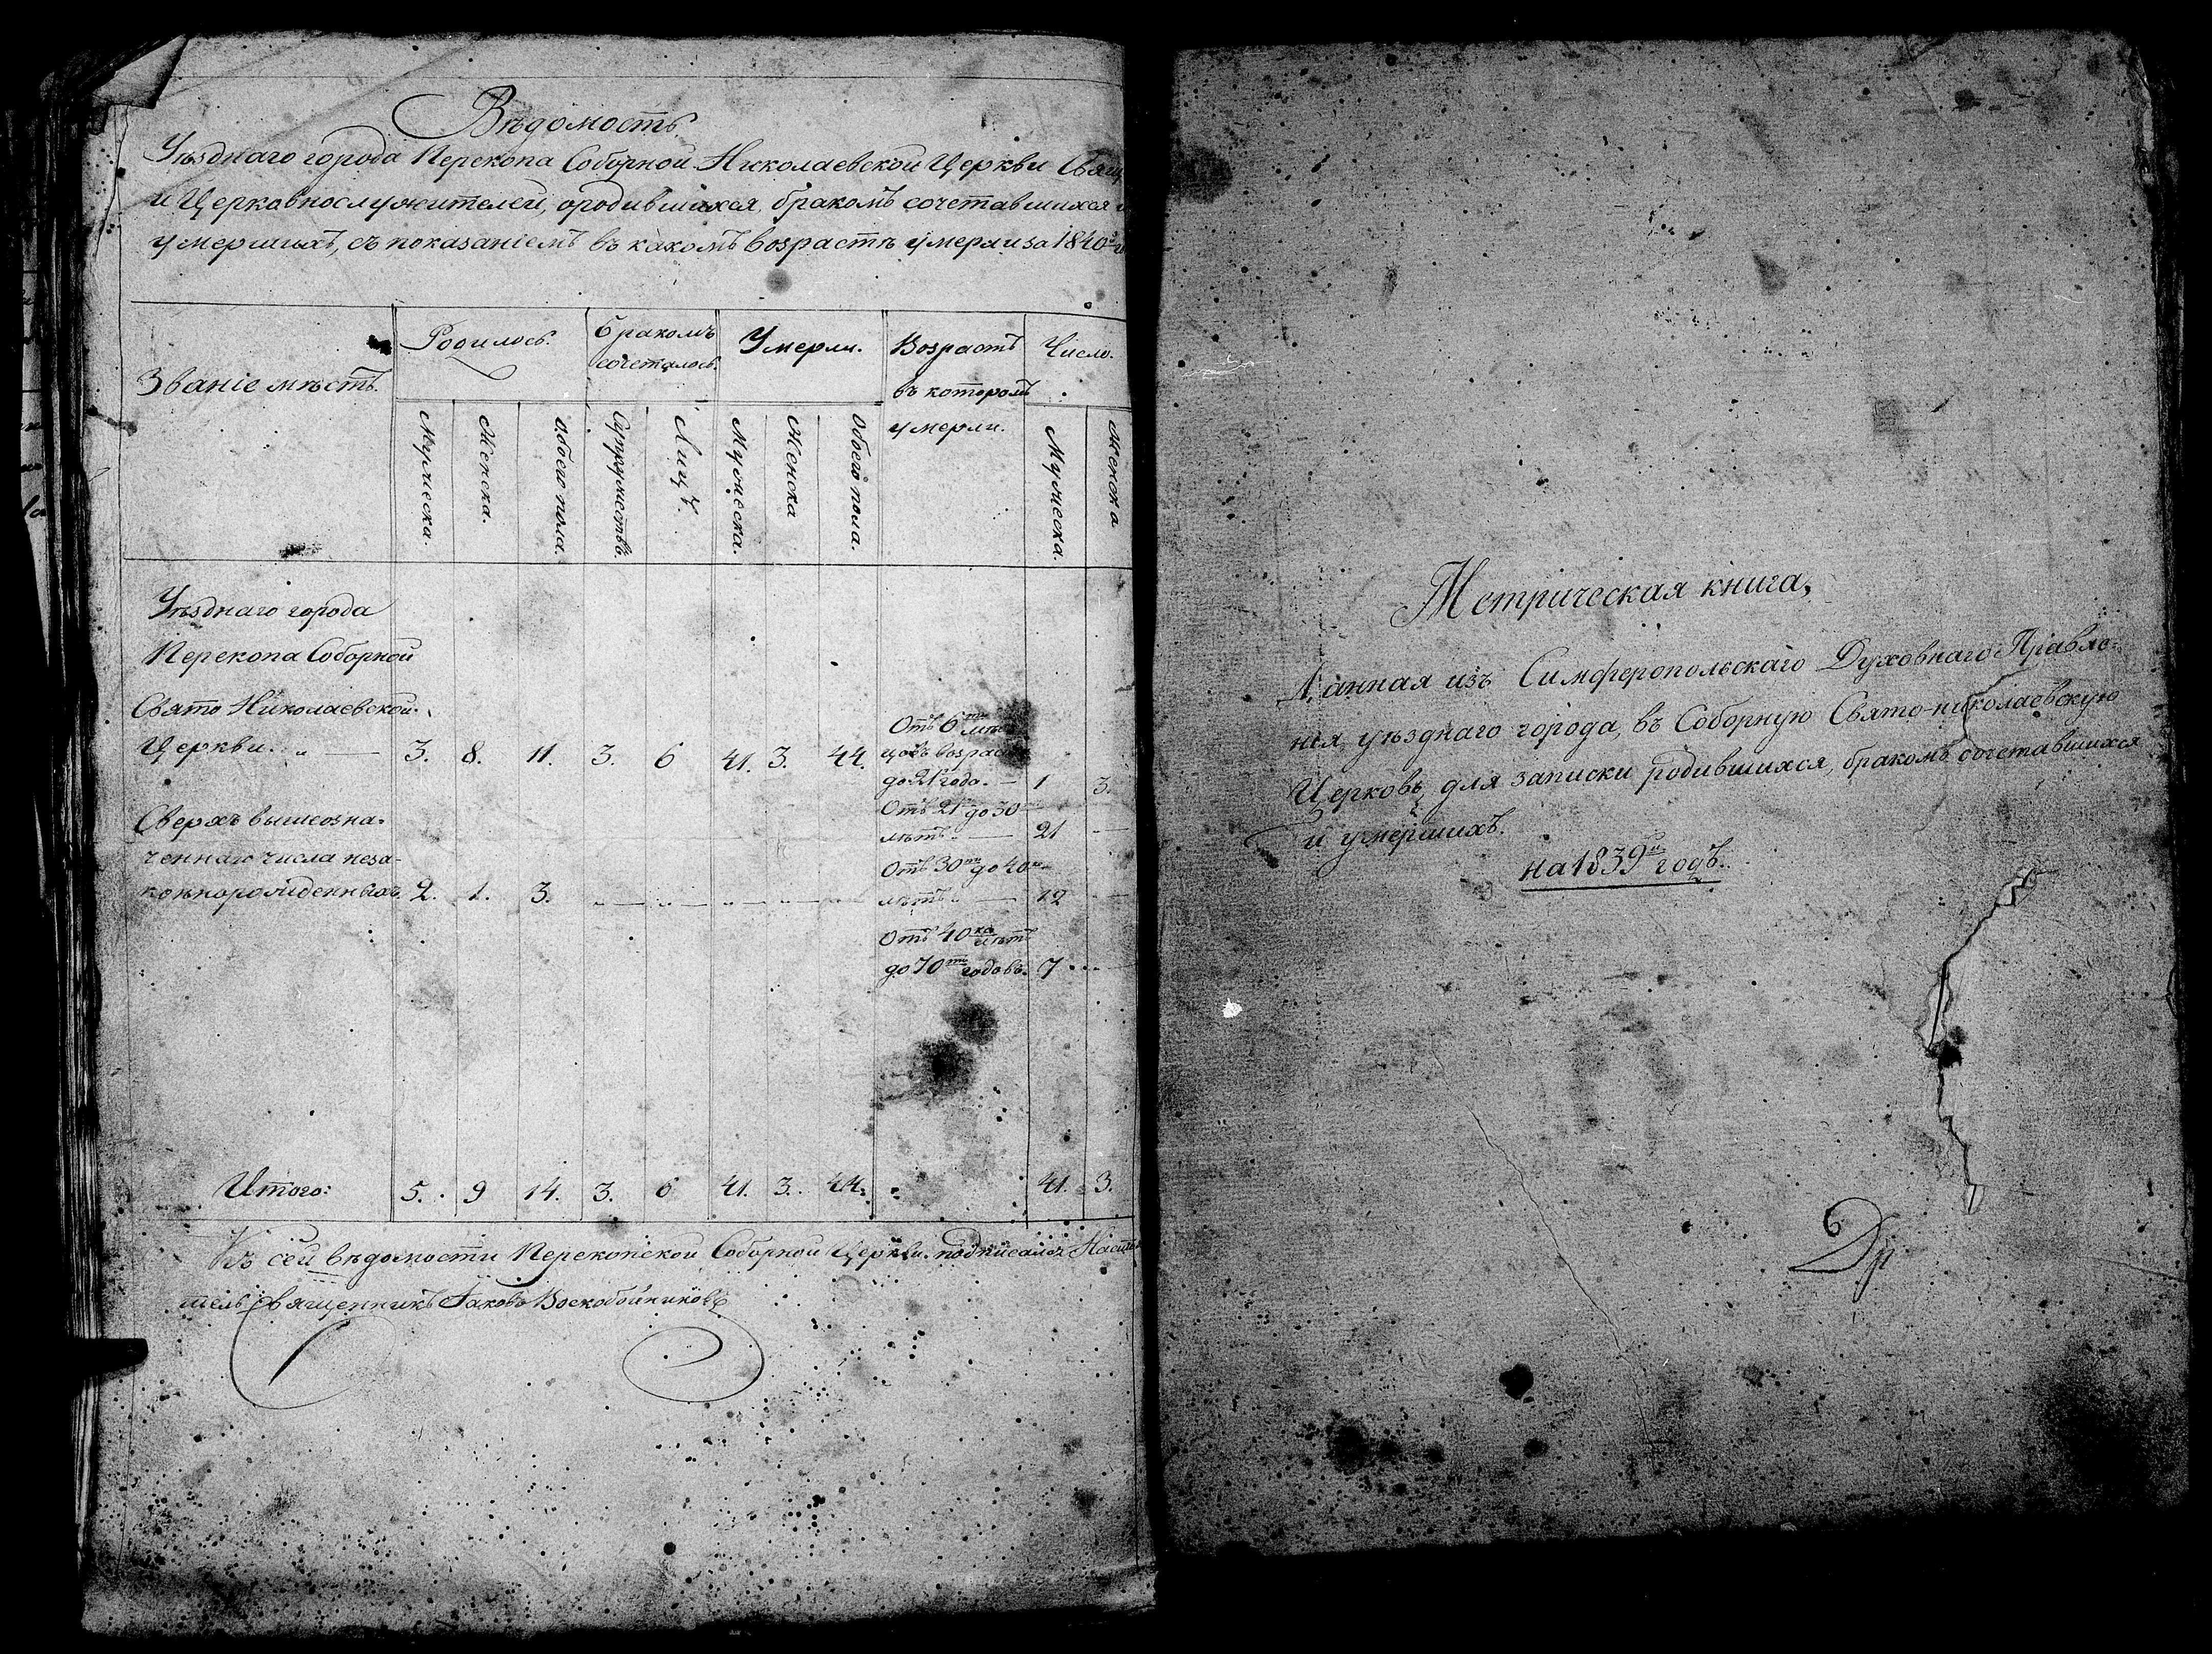 Вѣдомость
Уѣзднаго города Перекопа Соборной Николаевской Церкви Свящ
и Церковнослужителей, ородившихся, бракомъ сочетавшихся и
умершихъ, съ показаніемъ въ какомъ возрастѣ умерли за 1840й
Званіе мѣстъ. Родилось. Бракомъ сочеталось. Умерли. Возрастъ въ которомъ умерли. Число.
Мужеска. Женска. обоего пола. Супружествъ Лицъ. Мужеска. Женска Обоего пола. Мужеска. Женска
Уѣзднаго города
Перекопа Соборной
Свято Николаевской
Церкви. „ — 3. 8. 11. 3. 6 41. 3. 44.
Отъ 6ти мѣся
цовъ возраста
до 21 года. — 1 3.
Отъ 21 до 30
лѣтъ. — 21 —
Отъ 30ти до 40
лѣтъ. — 12 —
Отъ 40ка лѣтъ
до 70ти годовъ. 7 —
Сверхъ вышеозна-
ченнаго числа неза-
коннорожденныхъ. 2. 1. 3. „ — „ — „ — „ — „ —
Итого: 5. 9 14. 3. 6 41. 3. 44. 41. 3.
Къ сей вѣдомости Перекопской Соборной Церкви подписался Настоя
тель Священникъ Іаковъ Воскобойниковъ
Метрическая книга,
Данная изъ Симферопольскаго Духовнаго Правле-
нія, уѣзднаго города, въ Соборную Свято-николаевскую
Церковь, для записки родившихся, бракомъ сочетавшихся
и умершихъ.
на 1839й годъ.